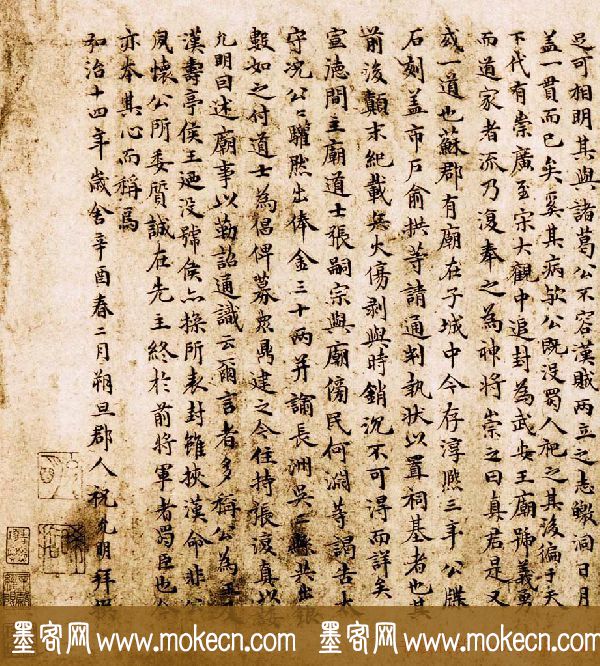 足可相明其與諸葛公不容漢賊兩立之志皦洞日月
蓋一貫而已矣奚其病歟公既沒蜀人祀之其後徧于天
下代有崇廣至宗大觀中追封為武安王廟號義勇
而道家者流乃復奉之為神將崇之曰真君是又
或一道也蘇郡有廟在子城中今存淳熙三年公牒
石刻蓋市戶俞拱等請通判執狀以置祠基者也其
前後顛末紀載兵火傷剥與時銷沉不可得而詳矣
宣徳間主廟道士張嗣宗與廟傍民何淵等謁告太
守况公公驩然出俸金三十两并諭長洲吳二縣共出銀
數如之付道士為倡俾募衆鼎建之今住持張復真以
允明曰述廟事以勒詔通識云爾言者多稱公為
漢壽亭侯王廼没號侯亦操所表封雖挾漢命非
夙懷公所委質誠在先主終於前將軍者蜀臣也
亦本其心而稱焉
弘治十四年歲舍辛酉春二月朔旦郡人祝允明拜
墨客网 www.mokecn.com 墨客网 www.mokecn.com